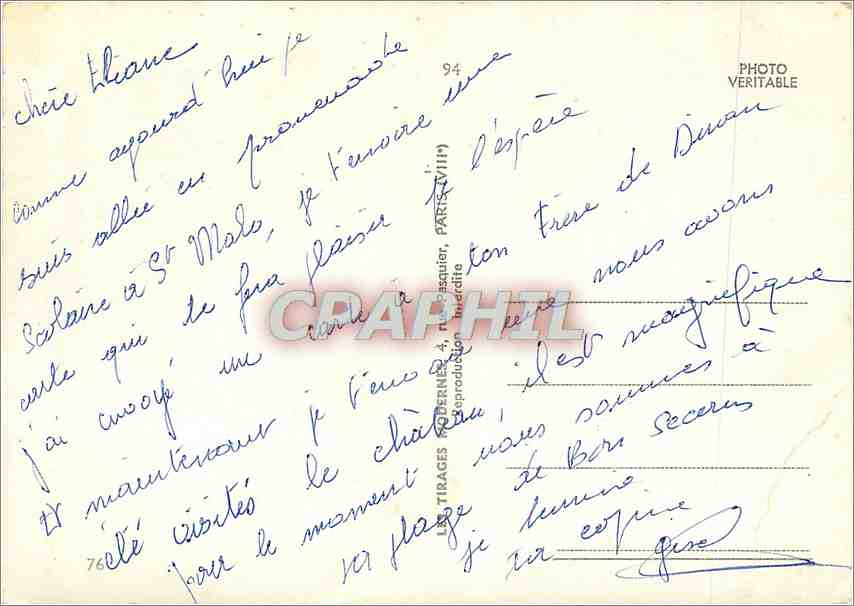 chère Eliane
comme aujourd'hui je
suis allée en promenade
Scolaire à St Malo, je t'envoie une
carte qui te fera plaisir je l'espère
j'ai envoyé une carte à ton Frère de Dinan
et maintenant je t'envoie une nous avons
été visités le château, il est magnifique
pour le moment nous sommes à
la plage de Bon Secours
je termine
ta copine
Gisel
94
PHOTO
VERITABLE
LES TIRAGES MODERNES, 4, rue Pasquier, PARIS (VIIIe)
Reproduction Interdite
76
CPAPHIL